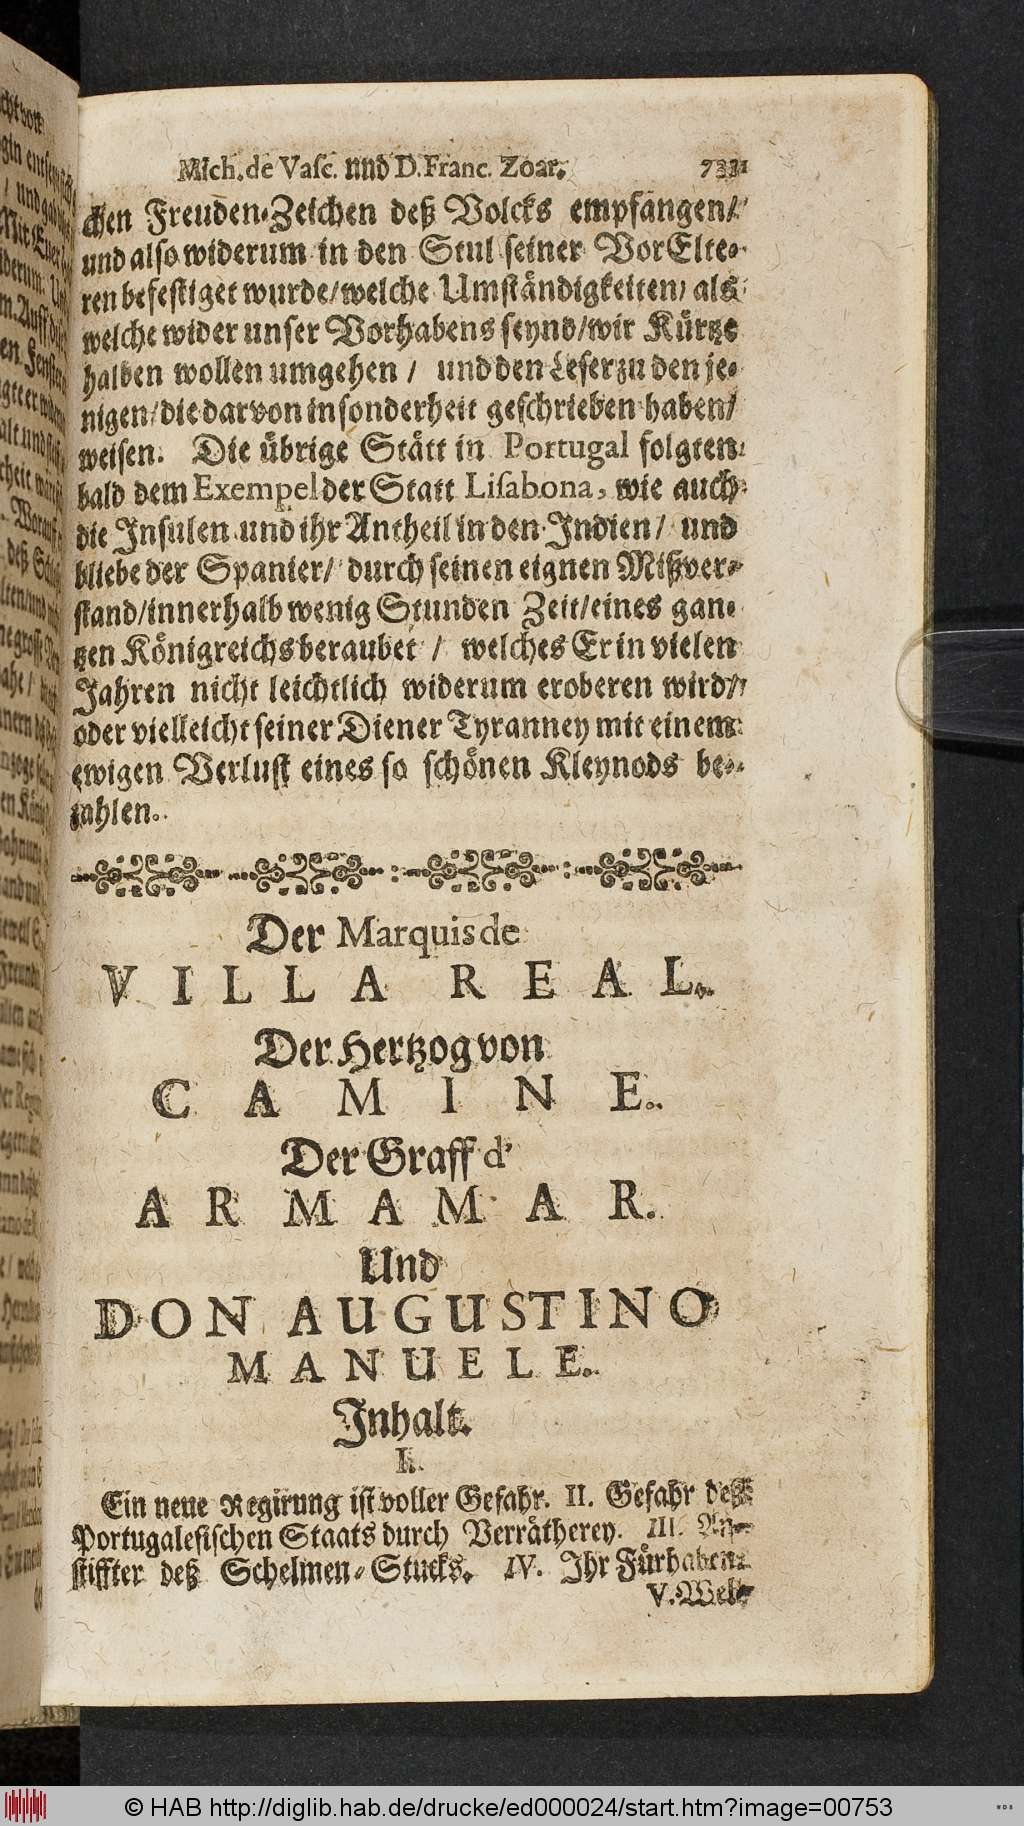 Mich. de Vaſc. und D. Franc. Zoar. 731
chen Freuden-Zeichen deß Volcks empfangen/
und also widerum in den Stul seiner VorElte-
ren befestiget wurde/welche Umständigkeiten/ als
welche wider unser Vorhabens seynd/wir Kürtze
halben wollen umgehen / und den Leser zu den je-
nigen/die darvon in sonderheit geschrieben haben/
weisen. Die übrige Stätt in Portugal folgten
bald dem Exempel der Statt Liſabona, wie auch
die Insulen und ihr Antheil in den Indien/ und
bliebe der Spanier/ durch seinen eignen Mißver-
stand/innerhalb wenig Stunden Zeit/eines gan-
tzen Königreichs beraubet / welches Er in vielen
Jahren nicht leichtlich widerum eroberen wird/
oder vielleicht seiner Diener Tyranney mit einem
ewigen Verlust eines so schönen Kleynods be-
zahlen.
Der Marquis de
VILLA REAL.
Der Hertzog von
CAMINE.
Der Graff d'
ARMAMAR.
Und
DON AUGUSTINO
MANUELE.
Inhalt.
I.
Ein neue Regirung ist voller Gefahr. II. Gefahr deß
Portugalesischen Staats durch Verrätherey. III. An-
stiffter deß Schelmen-Stucks. IV. Ihr Fürhaben.
V. Wel-
© HAB http://diglib.hab.de/drucke/ed000024/start.htm?image=00753